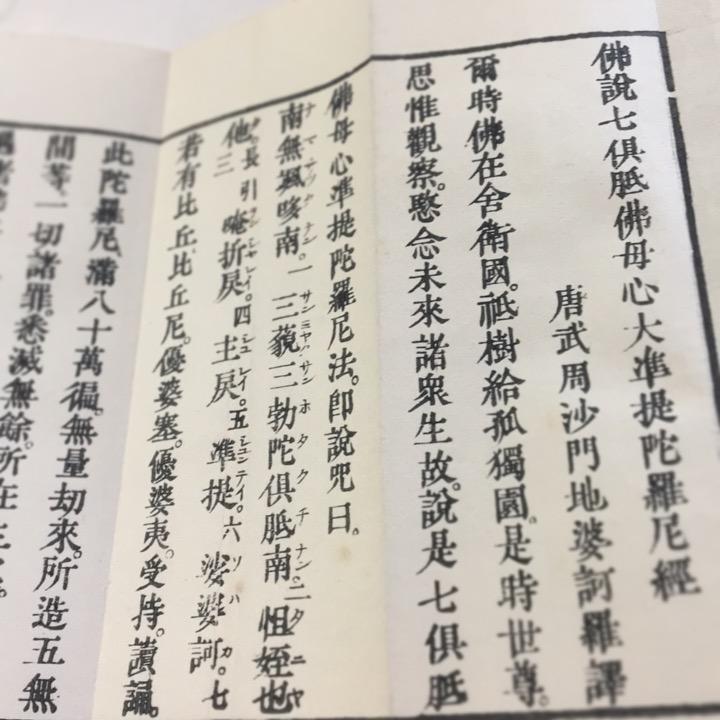 佛說七俱胝佛母心大準提陀羅尼經
唐武周沙門地婆訶羅譯
爾時佛在舍衛國。祇樹給孤獨園。是時世尊。
思惟觀察。愍念未來諸衆生故。說是七俱胝
佛母心準提陀羅尼法。卽說咒曰。
南無颯哆南。一 三藐三勃陀俱胝南。二 怛姪也
他三 長引 唵折戾。四 主戾。五 準提。六 娑婆訶。七
若有比丘。比丘尼。優婆塞。優婆夷。受持。讀誦。
此陀羅尼。滿八十萬徧。無量劫來。所造五無
間等。一切諸罪。悉滅無餘。所在生